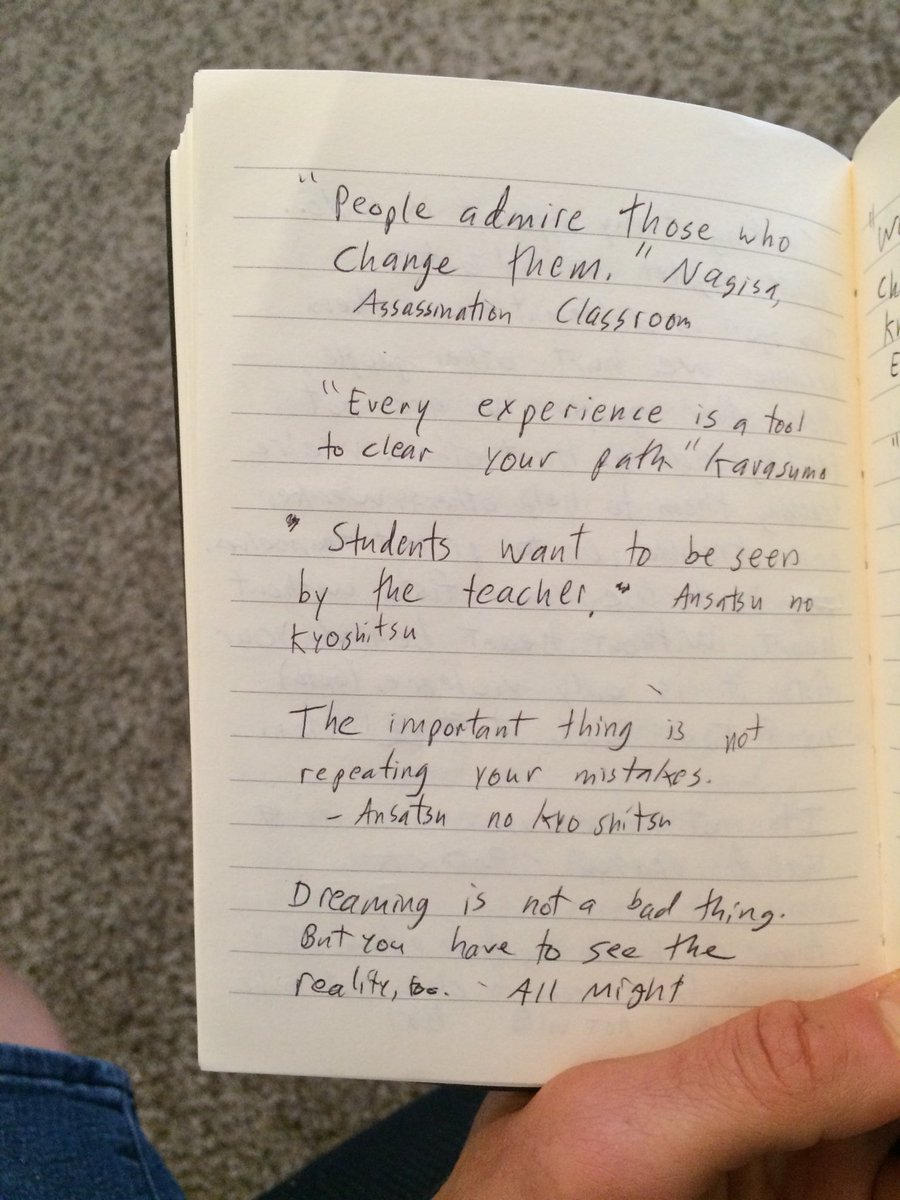 "People admire those who
change them." Nagisa,
Assassination Classroom
"Every experience is a tool
to clear your path" Karasuma
"Students want to be seen
by the teacher." Ansatsu no
Kyoshitsu
The important thing is not
repeating your mistakes.
- Ansatsu no Kyoshitsu
Dreaming is not a bad thing.
But you have to see the
reality, too. - All Might